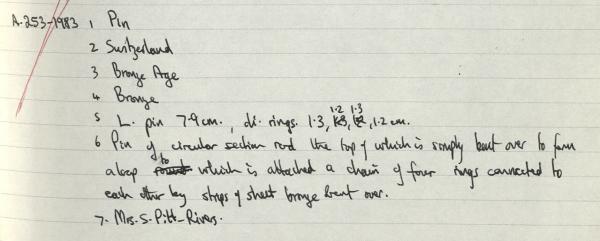 A.253-1983 1 Pin
2 Switzerland
3 Bronze Age
4 Bronze
5 L. pin 7.9 cm., di. rings. 1.3, 1.2, 1.3, 1.2 cm.
6 Pin of circular section rod the top of which is simply bent over to form
a loop to which is attached a chain of four rings connected to
each other by strips of sheet bronze bent over.
7. Mrs. S. Pitt-Rivers.